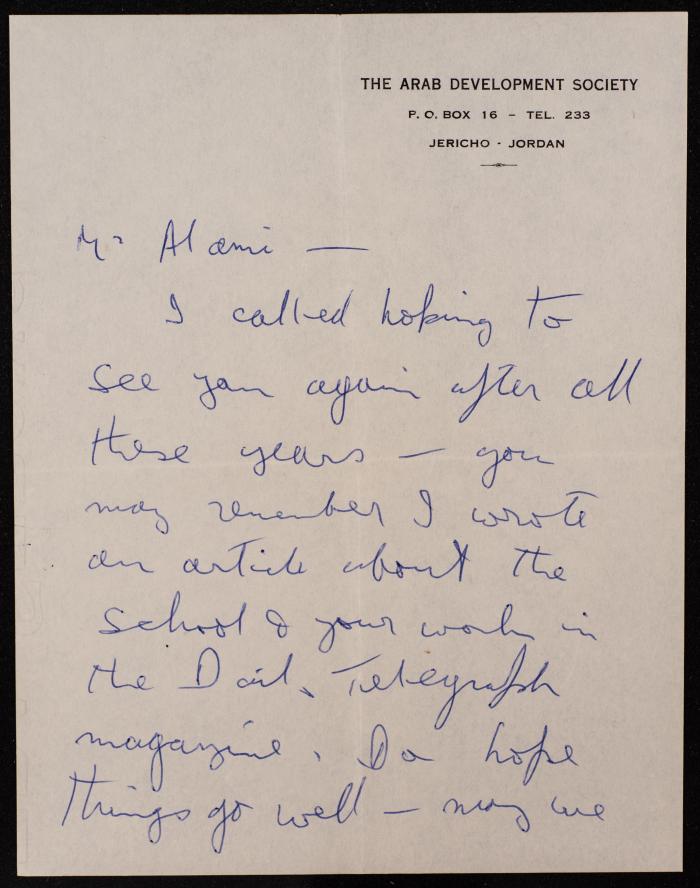 THE ARAB DEVELOPMENT SOCIETY
P. O. BOX 16 - TEL. 233
JERICHO - JORDAN
Mr Alami —
I called hoping to
see you again after all
these years — you
may remember I wrote
an article about the
school & your work in
the Daily Telegraph
magazine. Do hope
things go well — may we